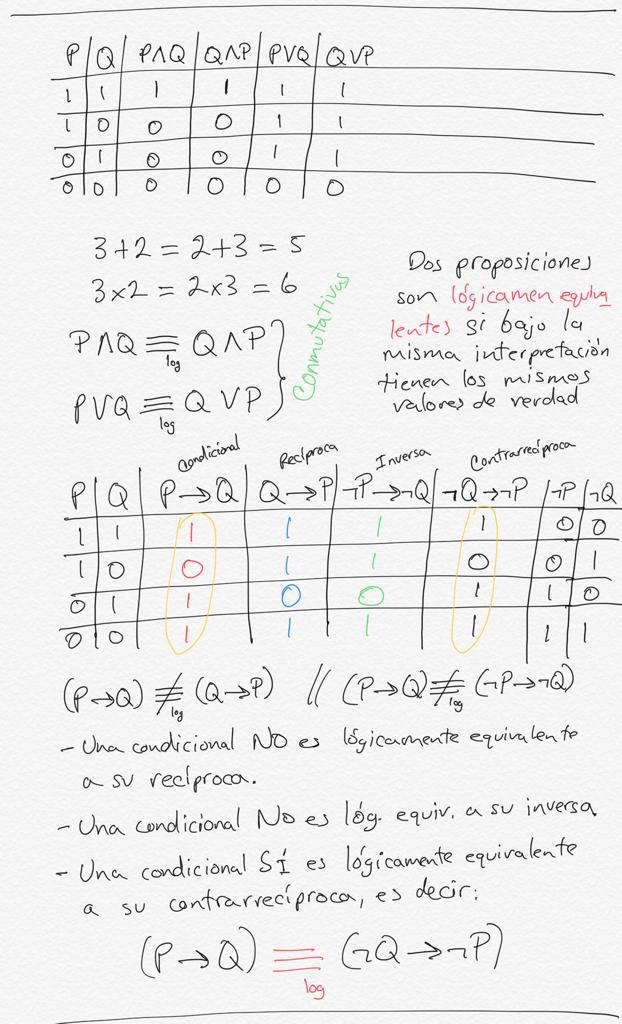 P Q P∧Q Q∧P P∨Q Q∨P
1 1 1 1 1 1
1 0 0 0 1 1
0 1 0 0 1 1
0 0 0 0 0 0
3+2 = 2+3 = 5
3×2 = 2×3 = 6
P∧Q ≡log Q∧P
P∨Q ≡log Q∨P
Conmutativas
Dos proposiciones
son lógicamen equiva
lentes si bajo la
misma interpretación
tienen los mismos
valores de verdad
Condicional Recíproca Inversa Contrarrecíproca
P Q P→Q Q→P ¬P→¬Q ¬Q→¬P ¬P ¬Q
1 1 1 1 1 1 0 0
1 0 0 1 1 0 0 1
0 1 1 0 0 1 1 0
0 0 1 1 1 1 1 1
(P→Q) ≢log (Q→P) // (P→Q) ≢log (¬P→¬Q)
- Una condicional NO es lógicamente equivalente
a su recíproca.
- Una condicional No es lóg. equiv. a su inversa
- Una condicional SÍ es lógicamente equivalente
a su contrarrecíproca, es decir:
(P→Q) ≡log (¬Q→¬P)